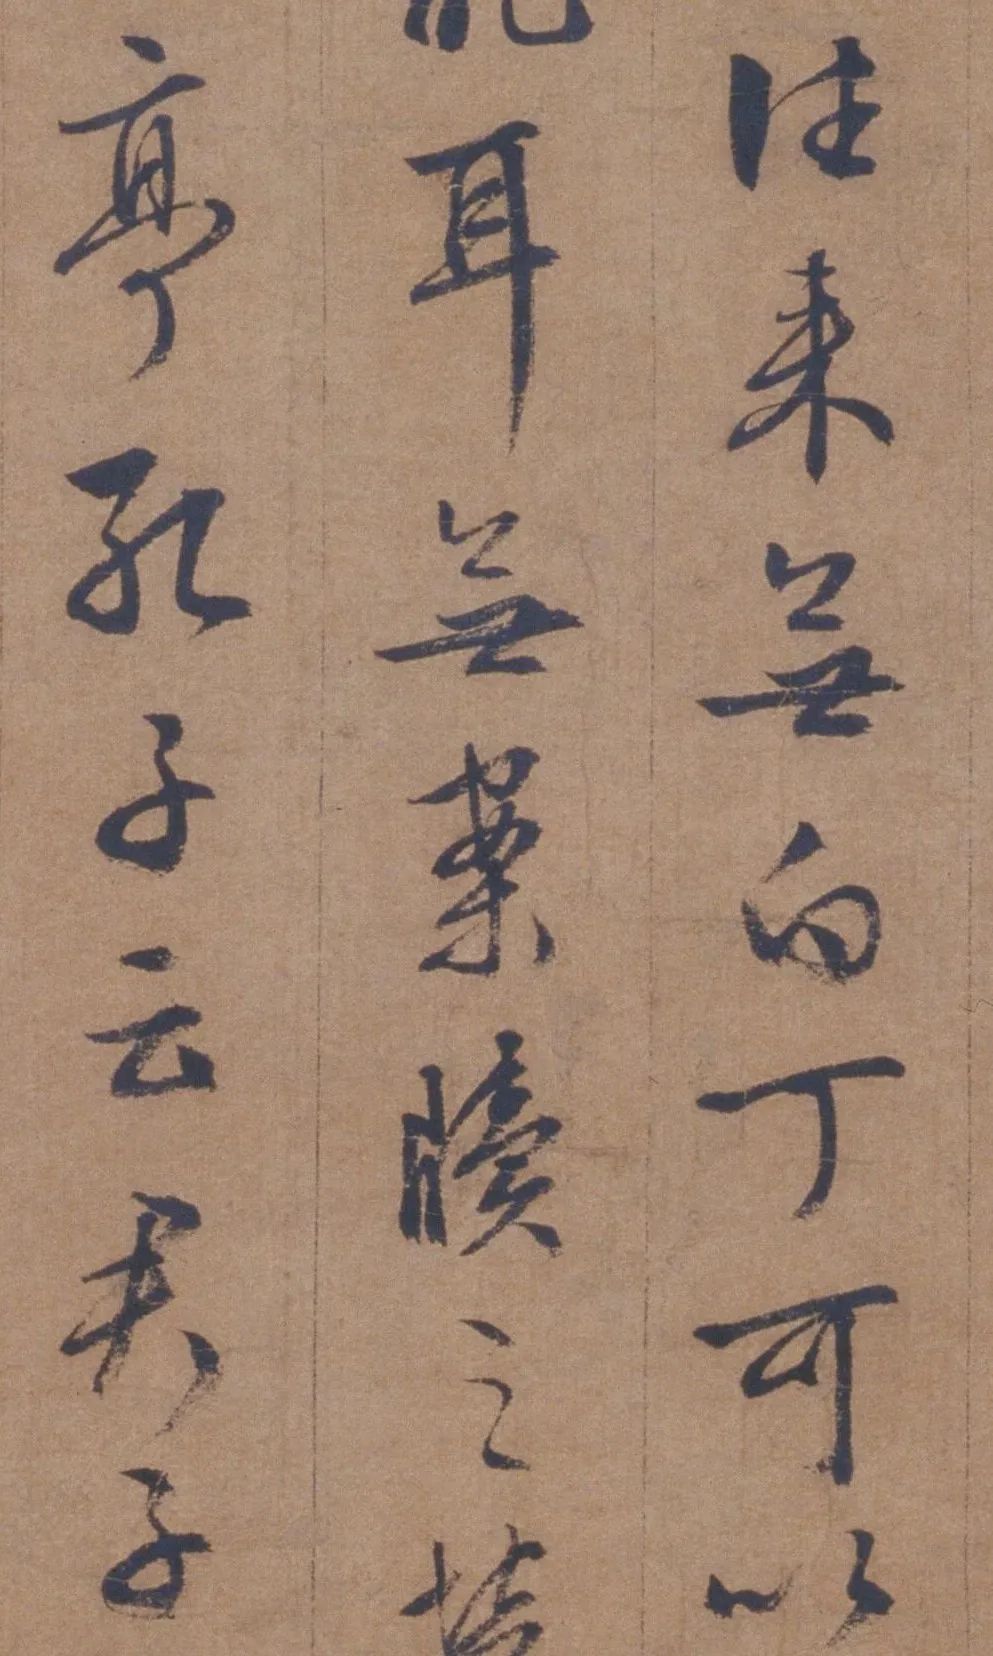 往来無白丁可以
耳無案牘之
亭孔子云君子